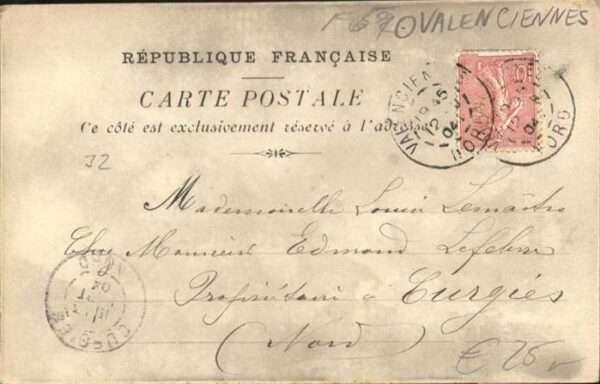 VALENCIENNES
RÉPUBLIQUE FRANÇAISE
CARTE POSTALE
Ce côté est exclusivement réservé à l'adresse
J2
VALENCIENNES
NORD
NORD
Mademoiselle Louise Lemaître
Chez Monsieur Edmond Lefebvre
Propriétaire à Curgies
(Nord)
CURGIES
€ 25